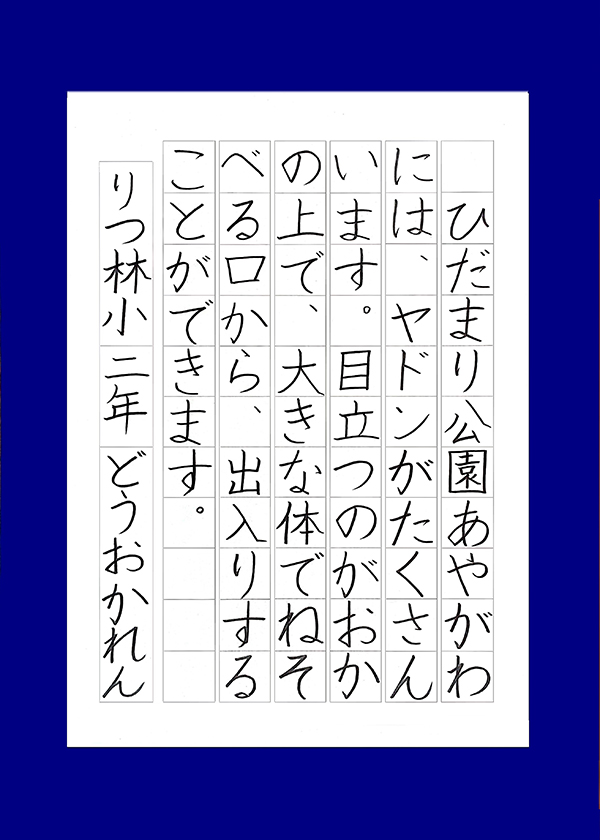 ひだまり公園あやがわ
には、ヤドンがたくさん
います。目立つのがおか
の上で、大きな体でねそ
べる口から、出入りする
ことができます。
りつ林小 二年 どうおかれん